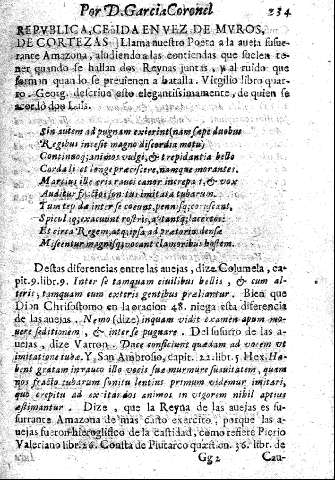 Por D. Garcia Coronel 234
REPVBLICA, CEÑIDA EN VEZ DE MVROS,
DE CORTEZAS] Llama nuestro Poeta a la aueja susur-
rante Amazona, aludiendo a las contiendas que suelen te-
ner quando se hallan dos Reynas juntas, y al ruido que
forman quan lo se preuienen a batalla. Virgilio libro quar-
to. Georg. descriue esto elegantissimamente, de quien se
acordò don Luis.
Sin autem ad pugnam exierint (nam sæpe duobus
Regibus incessit magno discordia motu)
Continuoq; animos vulgi, & trepidantia bello
Corda licet longe præsciscere, namque morantes.
Martius ille æris rauci canor increpat, & vox
Auditur fractos sonitus imitata tubarum.
Tum trepidæ inter se coeunt, pennisq; coruscant,
Spiculaq; exacuunt rostris, aptantq; lacertos:
Et circa Regem, atq; ipsa ad prætoria densæ
Miscentur, magnisq; vocant clamoribus hostem.
Destas diferencias entre las auejas, dize Columela, ca-
pit. 9. libr. 9. Inter se tamquam ciuilibus bellis, & cum al-
teris, tamquam cum exteris gentibus præliantur. Bien que
Dion Chrisostomo en la oracion 48. niega esta diferencia
de las auejas. Nemo (dize) inquam vidit examen apum mo-
uere seditionem, & inter se pugnare. Del susurro de las aue-
jas, dize Varron. Duces conficiunt quædam ad vocem vt
imitatione tubæ. Y San Ambrosio, capit. 22. libr. 5 Hex. Ha-
bent gratam in rauco illo vocis suæ murmure suauitatem, quam
nos fracto tubarum sonitu lentius primum videmur imitari,
quo crepitu ad excitandos animos in vigorem nihil aptius
æstimantur. Dize, que la Reyna de las auejas es su-
surrante Amazona de mas casto exercito, porque las a-
uejas fueron hieroglifico de la castidad, como refiere Pierio
Valeriano libr. 26. Consta de Plutarco quæstion. 36. libr. de
Gg 2 Cau-